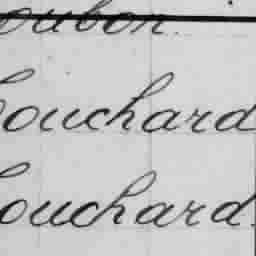 oubon.
Couchard
Couchard.